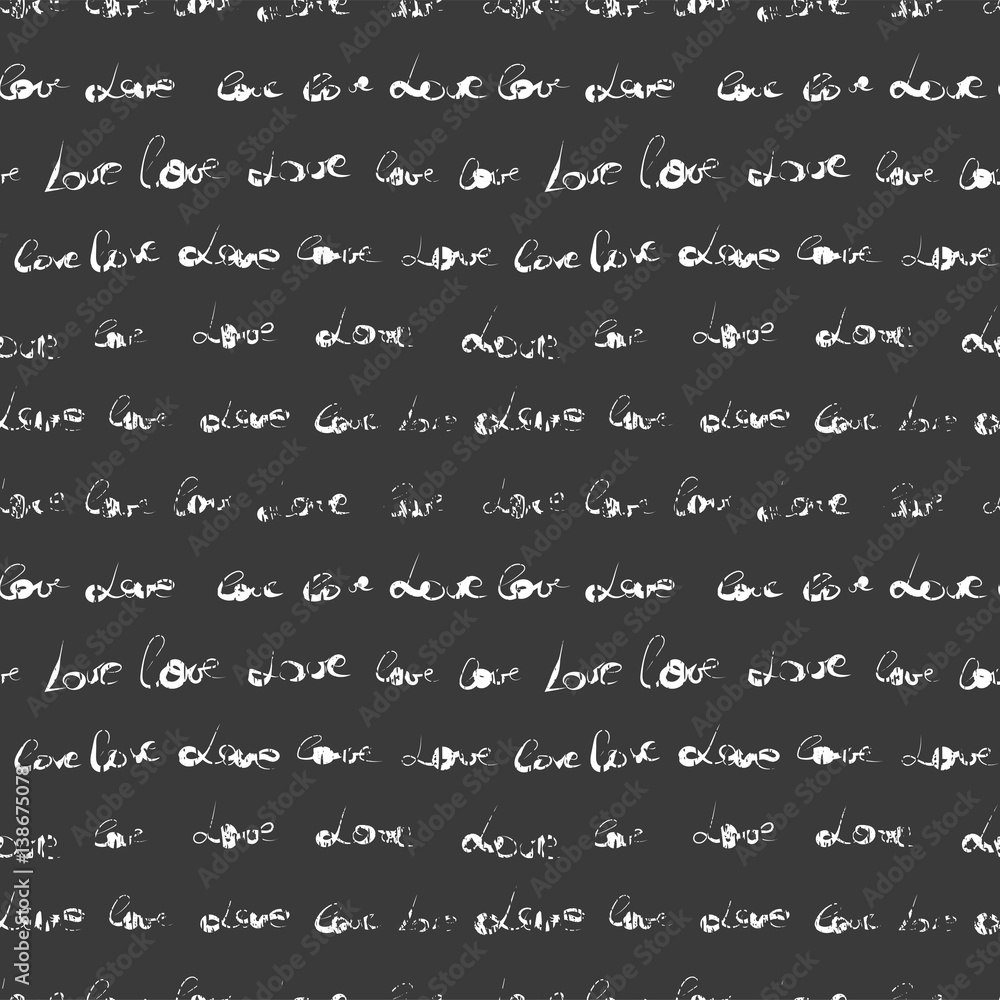 love love love love Love love love love love Love
Love love Love love love Love love Love love love
love love Love love Love love love Love love Love
Love love Love Love Love love Love Love
Love love Love love love Love love Love love love
Love love love Love love Love love love Love love
love Love love love Love love Love love love Love
Love love Love love love Love love Love love love
love love Love love Love love love Love love Love
love Love Love Love love Love Love
Love love Love love love Love love Love love love
Adobe Stock | #138675078